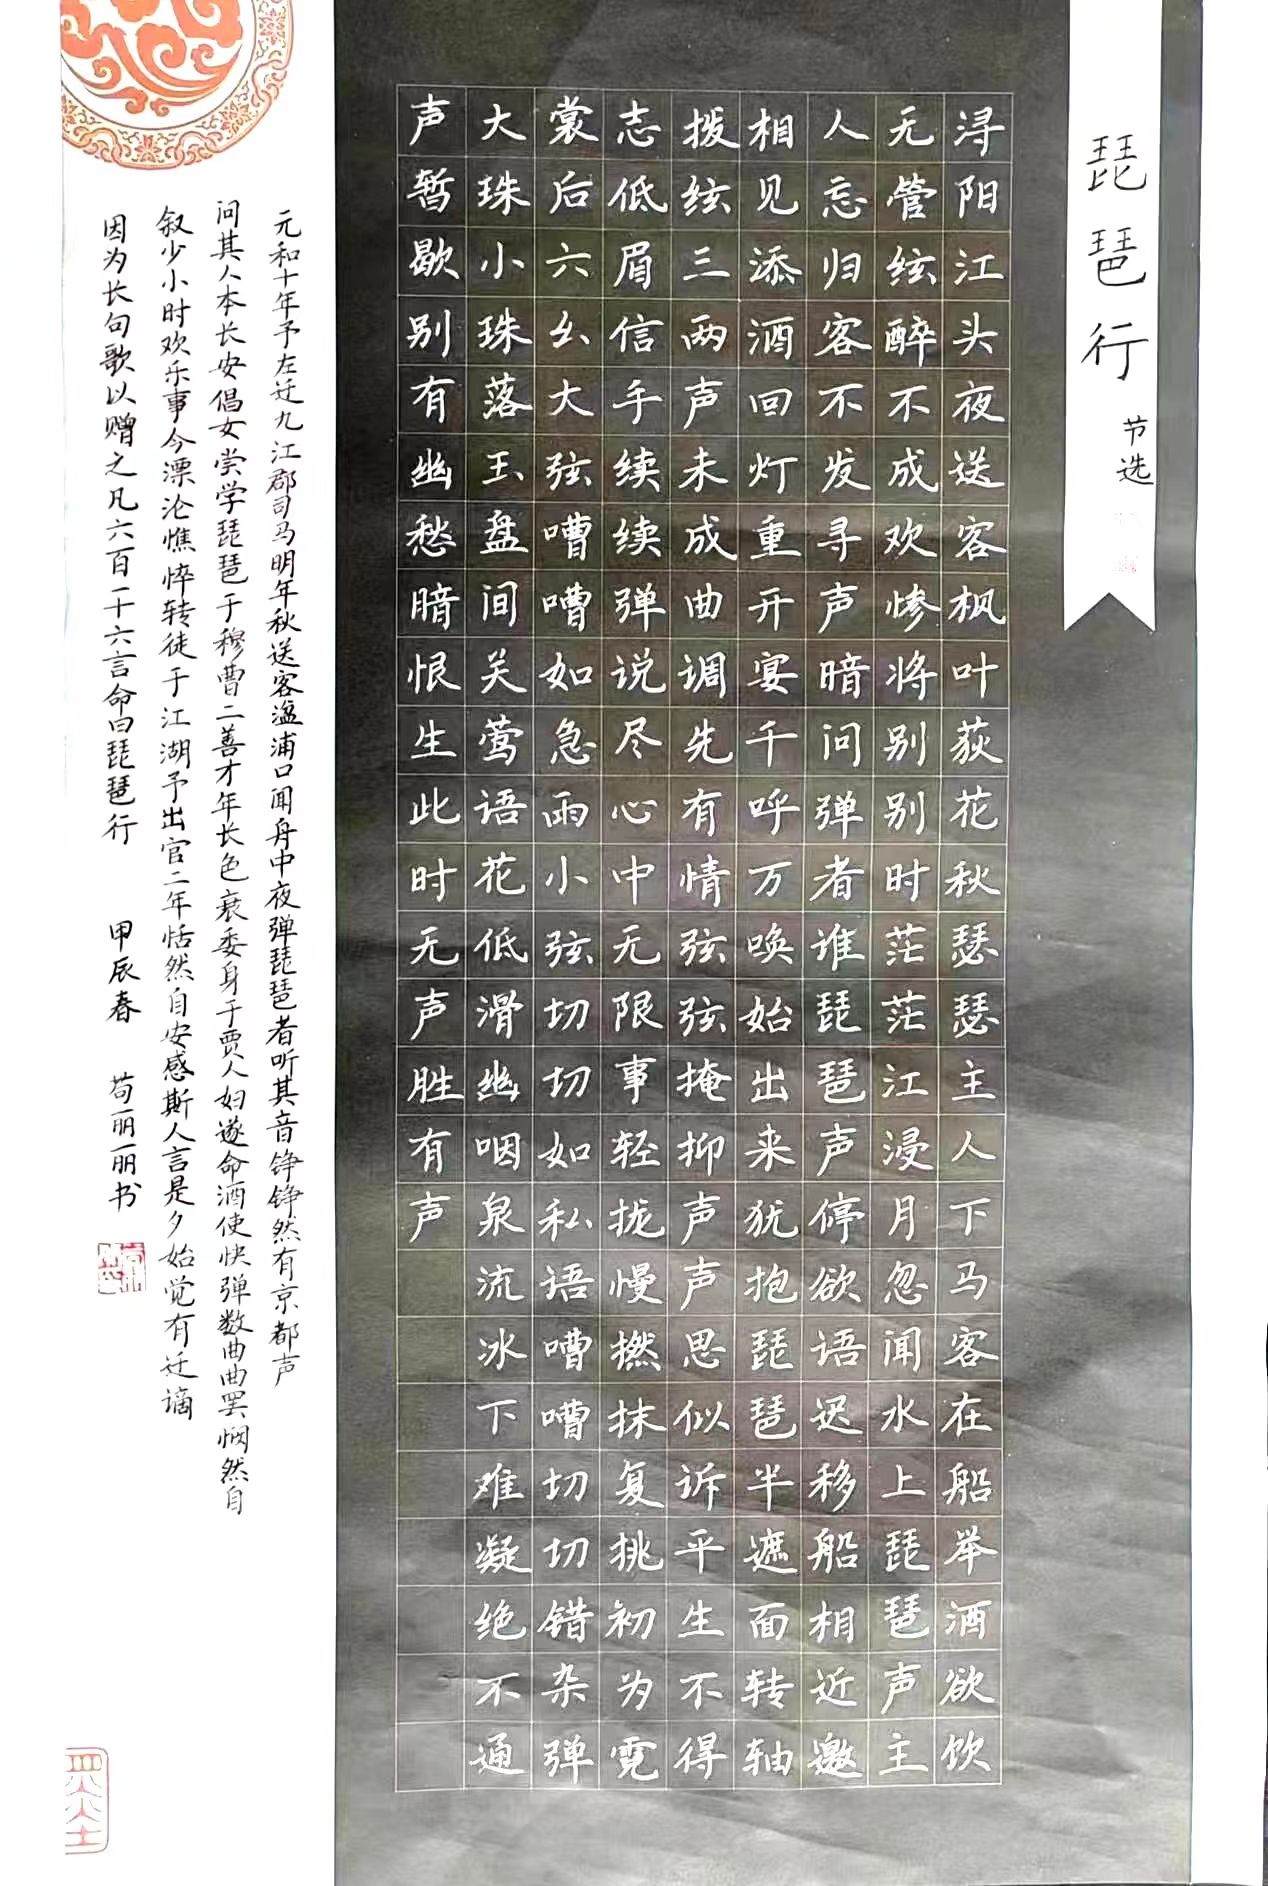 琵琶行 节选
浔阳江头夜送客枫叶荻花秋瑟瑟主人下马客在船举酒欲饮
无管絃醉不成欢惨将别别时茫茫江浸月忽闻水上琵琶声主
人忘归客不发寻声暗问弹者谁琵琶声停欲语迟移船相近邀
相见添酒回灯重开宴千呼万唤始出来犹抱琵琶半遮面转轴
拨絃三两声未成曲调先有情弦弦掩抑声声思似诉平生不得
志低眉信手续续弹说尽心中无限事轻拢慢撚抹复挑初为霓
裳后六幺大弦嘈嘈如急雨小弦切切如私语嘈嘈切切错杂弹
大珠小珠落玉盘间关莺语花低滑幽咽泉流冰下难凝绝不通
声暂歇别有幽愁暗恨生此时无声胜有声
元和十年予左迁九江郡司马明年秋送客湓浦口闻舟中夜弹琵琶者听其音铮铮然有京都声
问其人本长安倡女尝学琵琶于穆曹二善才年长色衰委身于贾人妇遂命酒使快弹数曲曲罢悯然自
叙少小时欢乐事今漂沦憔悴转徒于江湖予出官二年恬然自安感斯人言是夕始觉有迁谪
因为长句歌以赠之凡六百一十六言命曰琵琶行 甲辰春 苟丽丽书